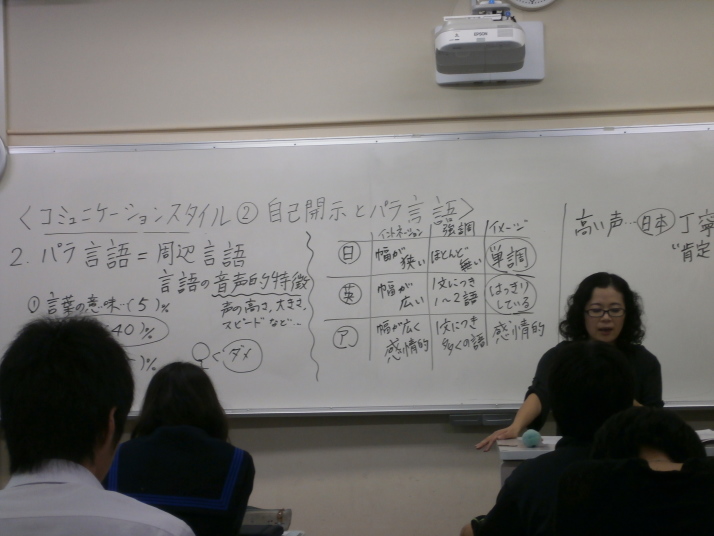 〈コミュニケーションスタイル② 自己開示とパラ言語〉
2. パラ言語=周辺言語
言語の音声的特徴
声の高さ、大きさ、
スピードなど…
① 言葉の意味…(5)%
40)%
)%
♀<ダメ
イントネーション 強調 イメージ
日 幅が狭い ほとんど無い 単調
英 幅が広い 1文につき1~2語 はっきりしている
ア 幅が広く感情的 1文につき多くの語 感情的
高い声…日本 丁寧
"肯定
EPSON